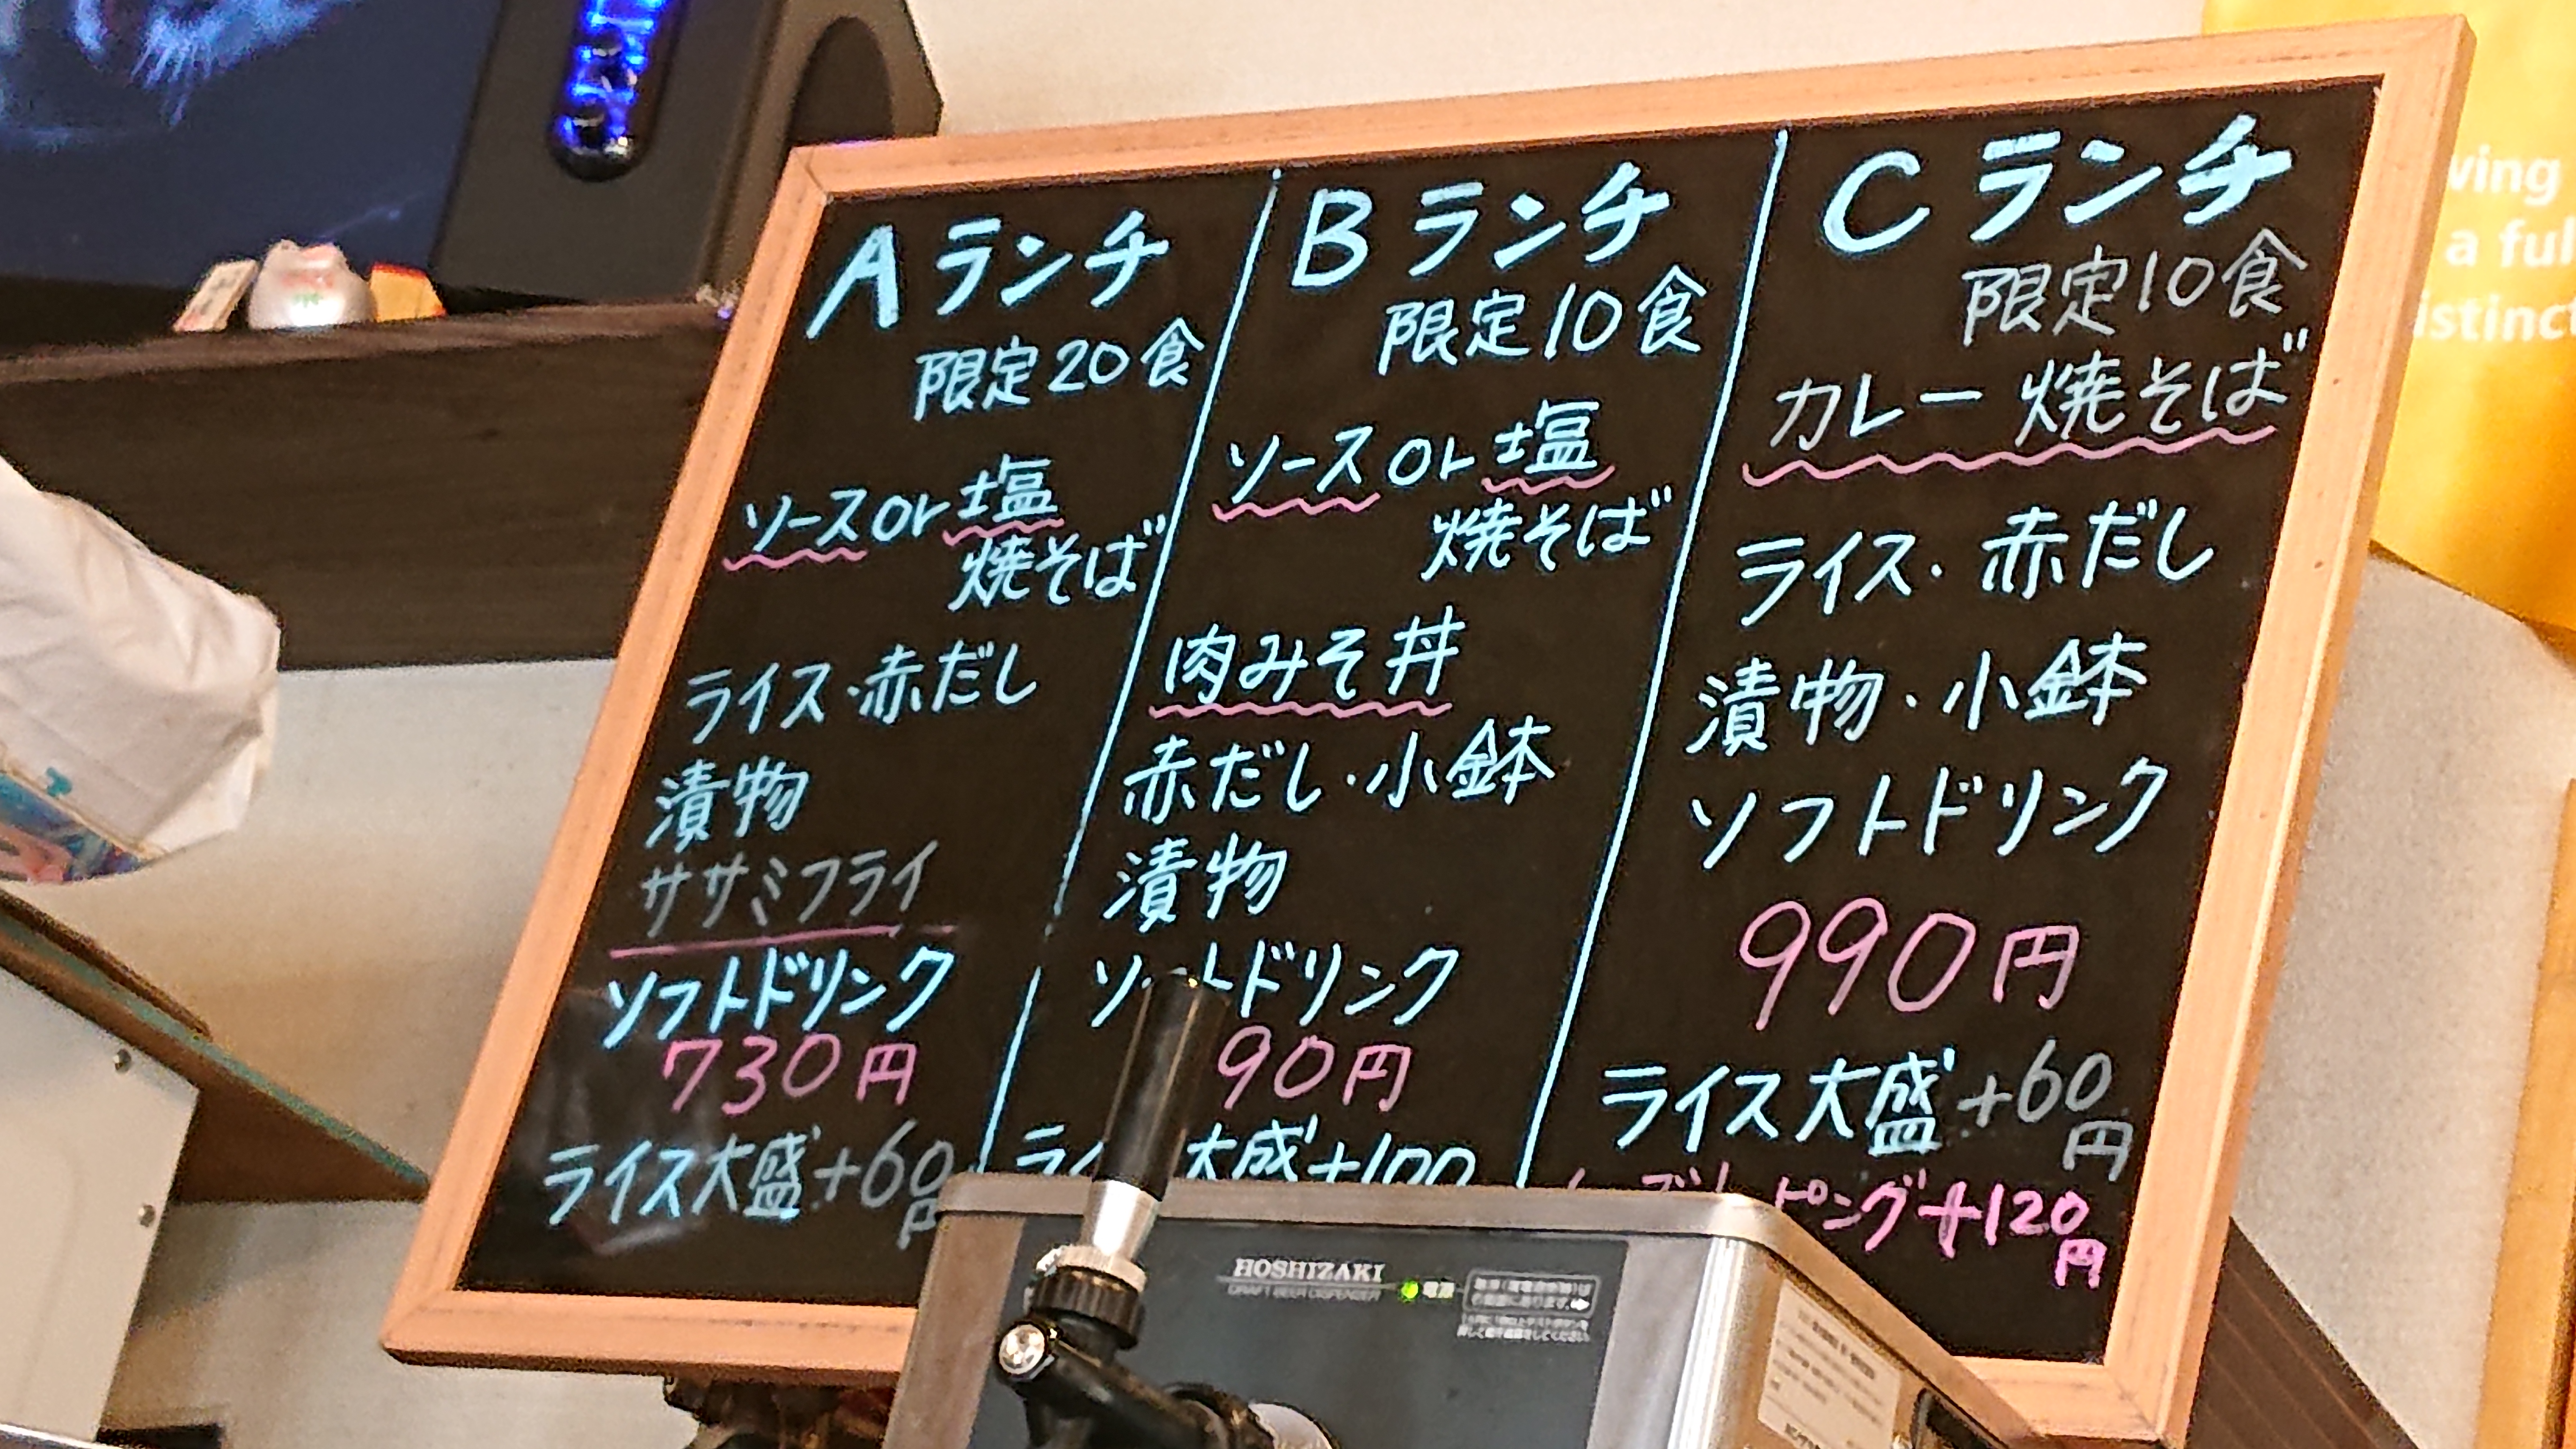 Aランチ
限定20食
ソースor塩
焼そば
ライス・赤だし
漬物
ササミフライ
ソフトドリンク
730円
ライス大盛+60円
Bランチ
限定10食
ソースor塩
焼そば
肉みそ丼
赤だし・小鉢
漬物
ソ トドリンク
90円
ライ 大盛+100
Cランチ
限定10食
カレー焼そば
ライス・赤だし
漬物・小鉢
ソフトドリンク
990円
ライス大盛+60
円
ピング+120
円
HOSHIZAKI
DRAFT BEER DISPENSER
電源
ving
a ful
istinct